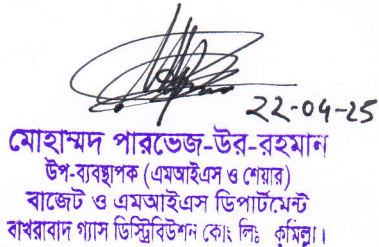 22-04-25
মোহাম্মদ পারভেজ-উর-রহমান
উপ-ব্যবস্থাপক (এমআইএস ও শেয়ার)
বাজেট ও এমআইএস ডিপার্টমেন্ট
বাখরাবাদ গ্যাস ডিস্ট্রিবিউশন কোং লিঃ কুমিল্লা।